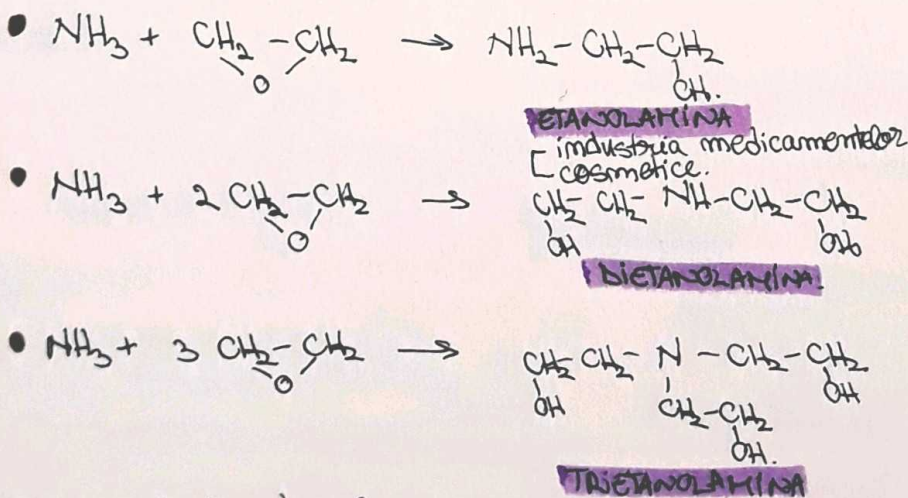 • NH3 + CH2 - CH2 → NH2 - CH2 - CH2
O CH.
ETANOLAMINA
[ industria medicamentelor
cosmetice.
• NH3 + 2 CH2 - CH2 → CH2 - CH2 - NH - CH2 - CH2
O OH OH
DIETANOLAMINA.
• NH3 + 3 CH2 - CH2 → CH2 - CH2 - N - CH2 - CH2
O OH CH2 - CH2 OH
OH.
TRIETANOLAMINA